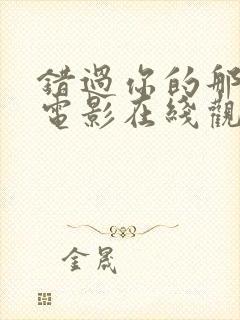 錯過你的那
電影在綫觀
金晟